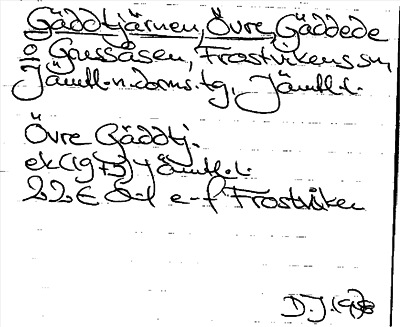 Gäddtjärnen, Övre, Gäddede
o Gussåsen, Frostvikens sn,
Jämtl. n. doms. tg, Jämtl. l.
Övre Gäddtj.
ek (1973) Jämtl. l.
22E e-f Frostviken
D.J. 19